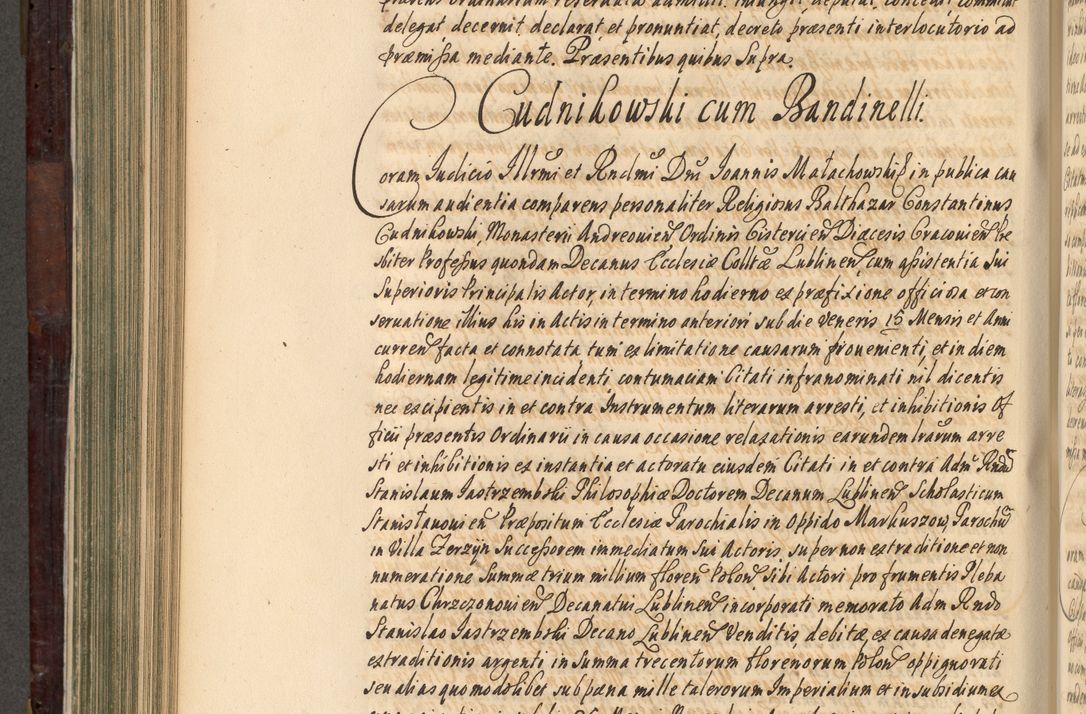 delegat decernit declarat et pronuntiat, decreto præsenti interlocutorio ad
præmissa mediante. Præsentibus quibus Supra.
Cudnikowski cum Bandinelli.
Coram Iudicio Illrmi et Rndmi Dni Ioannis Małachowski in publica cau
sarum audientia comparens personaliter Religiosus Balthazar Constantinus
Cudnikowski, Monasterii Andreouien Ordinis Cistercien Diæcesis Cracouien Pre
sbiter Professus quondam Decanus Ecclesiæ Colltæ Lublinen, cum assistentia Sui
Superioris Principalis Actor, in termino hodierno ex præfixione officiosa et con
seruatione illius his in Actis in termino anteriori sub die Veneris 15 Mensis et Anni
curren facta et connotata tum ex limitatione causarum prouenienti, et in diem
hodiernam legitime incidenti contumaciam Citati infranominati nil dicentis
nec excipientis in et contra Instrumentum literarum arresti, et inhibitionis Of
ficii præsentis Ordinarii in causa occasione relaxationis earundem lrarum arre
sti et inhibitionis ex instantia et actoratu eiusdem Citati in et contra Adm Rndū
Stanislaum Jastrzembski Philosophiæ Doctorem Decanum Lublinen Scholasticum
Stanislauouien Præpositum Ecclesiæ Parochialis in Oppido Markuszow, Parochū
in Villa Zerzyn Successorem immediatum Sui Actoris super non extraditione et non
numeratione Summæ trium millium floren Polon Sibi Actori pro frumentis Pleba
natus Chrzczonouien Decanatui Lublinen incorporati memorato Adm Rndo
Stanislao Jastrzembski Decano Lublinen Venditis, debitæ, ex causa denegatæ
extraditionis argenti in Summa trecentorum florenorum Polon oppignorati
seu alias quomodolibet sub pæna mille talerorum Imperialium et in subsidium ex